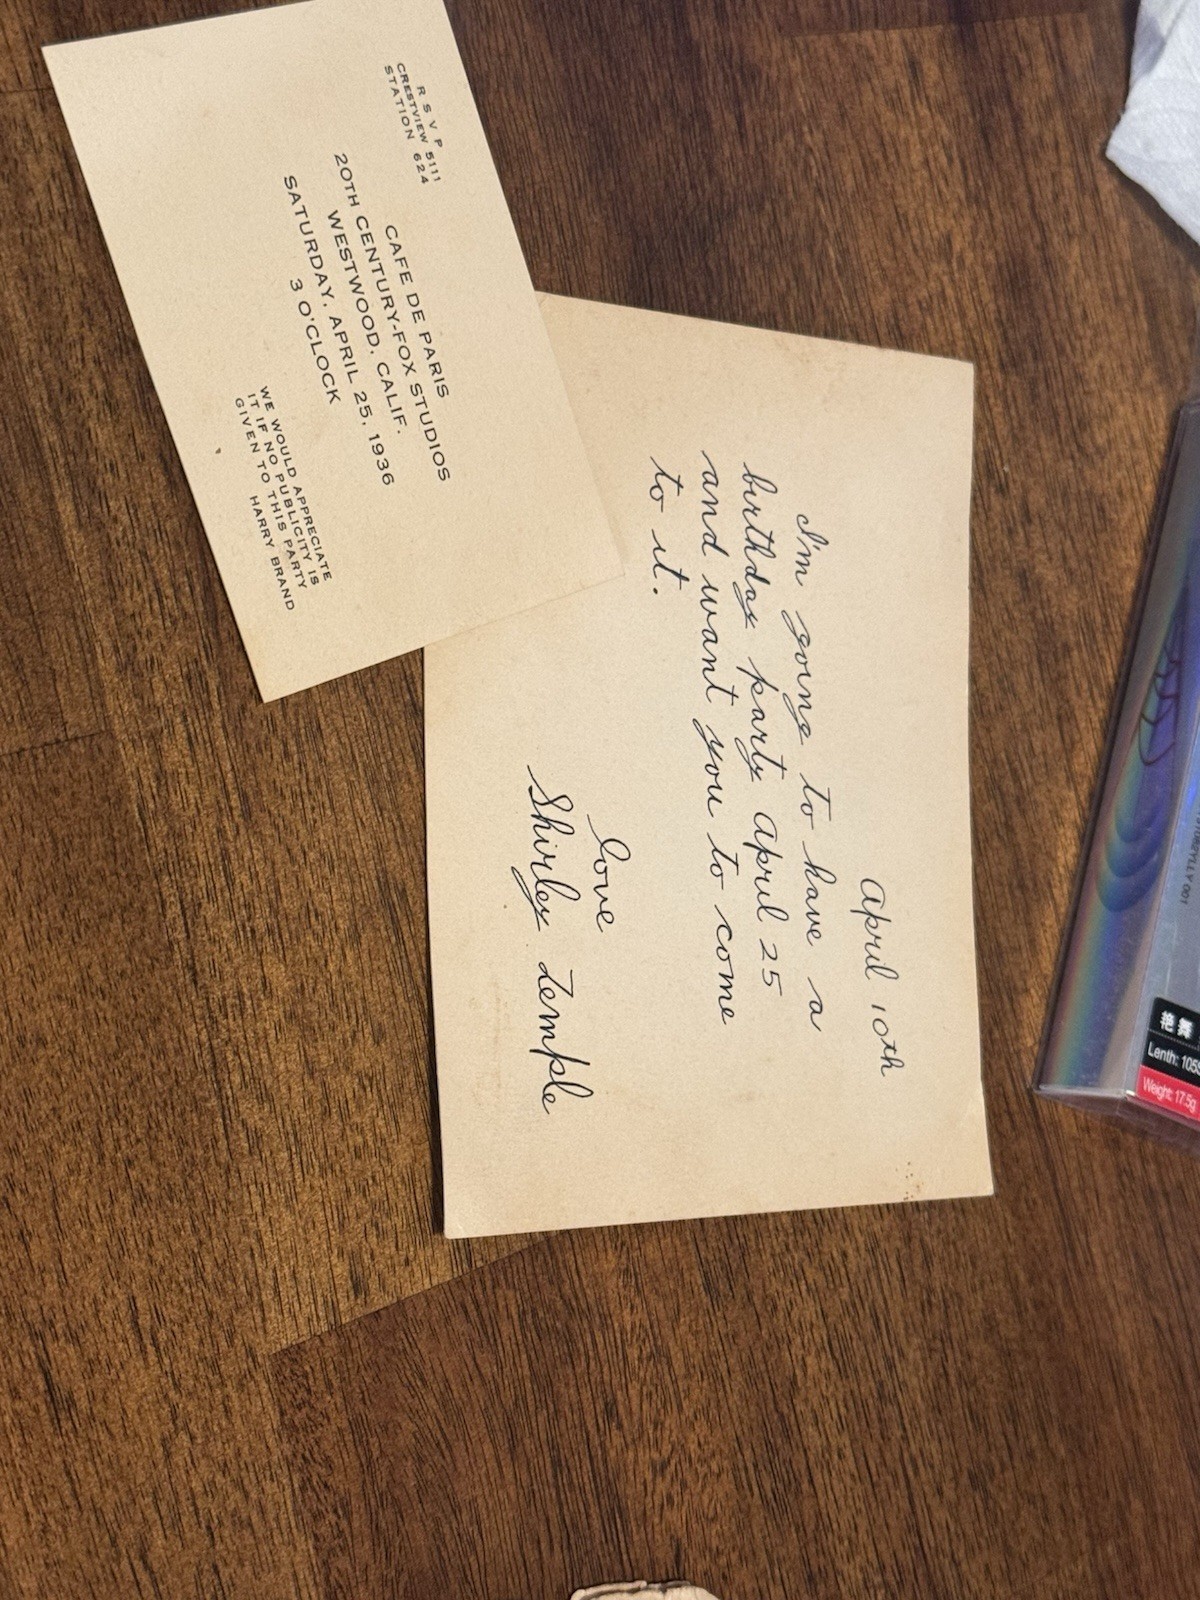 R S V P
CRESTVIEW 5111
STATION 624
CAFE DE PARIS
20TH CENTURY-FOX STUDIOS
WESTWOOD, CALIF.
SATURDAY, APRIL 25, 1936
3 O'CLOCK
WE WOULD APPRECIATE
IT IF NO PUBLICITY IS
GIVEN TO THIS PARTY
HARRY BRAND
April 10th
I'm going to have a
birthday party April 25
and want you to come
to it.
Love
Shirley Temple
艳舞
Lenth: 105
Weight: 17.5g